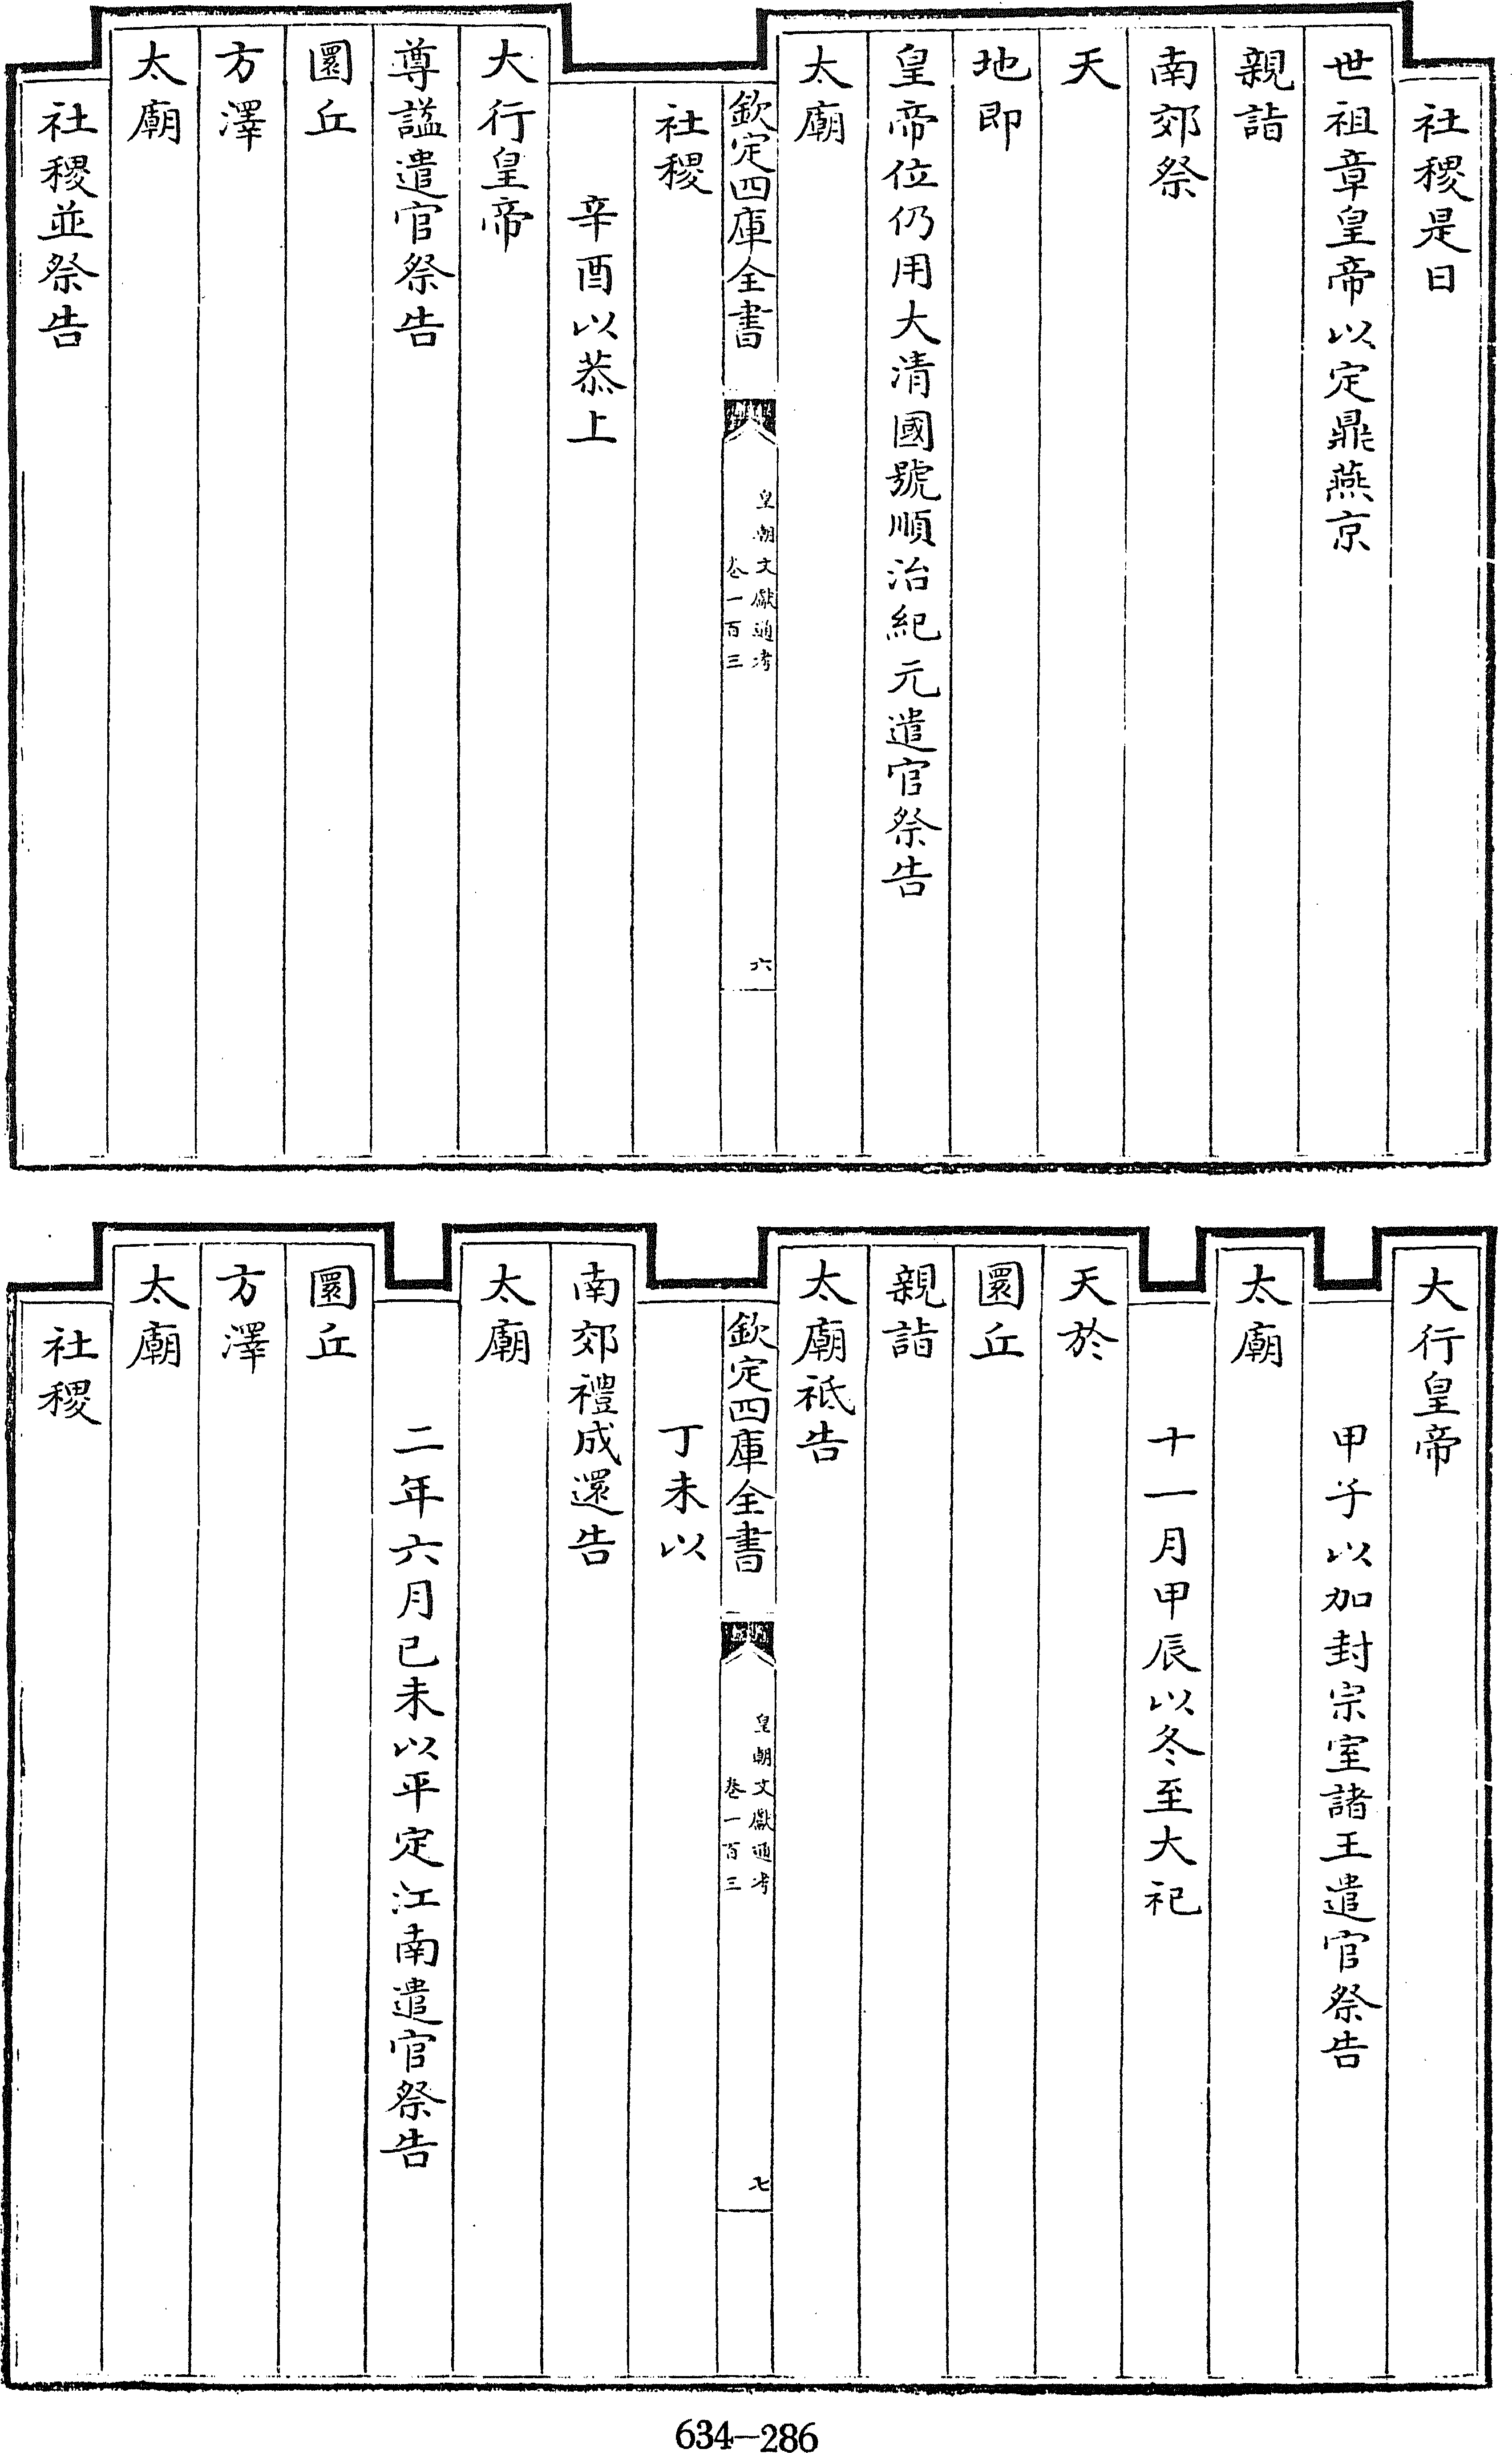 社稷是日
世祖章皇帝以定鼎燕京
親詣
南郊祭
天
地即
皇帝位仍用大清國號順治紀元遣官祭告
太廟
欽定四庫全書
皇朝文獻通考
卷一百三
六
社稷
辛酉以恭上
大行皇帝
尊諡遣官祭告
圜丘
方澤
太廟
社稷並祭告
大行皇帝
甲子以加封宗室諸王遣官祭告
太廟
十一月甲辰以冬至大祀
天於
圜丘
親詣
太廟祗告
欽定四庫全書
皇朝文獻通考
卷一百三
七
丁未以
南郊禮成還告
太廟
二年六月己未以平定江南遣官祭告
圜丘
方澤
太廟
社稷
634-286